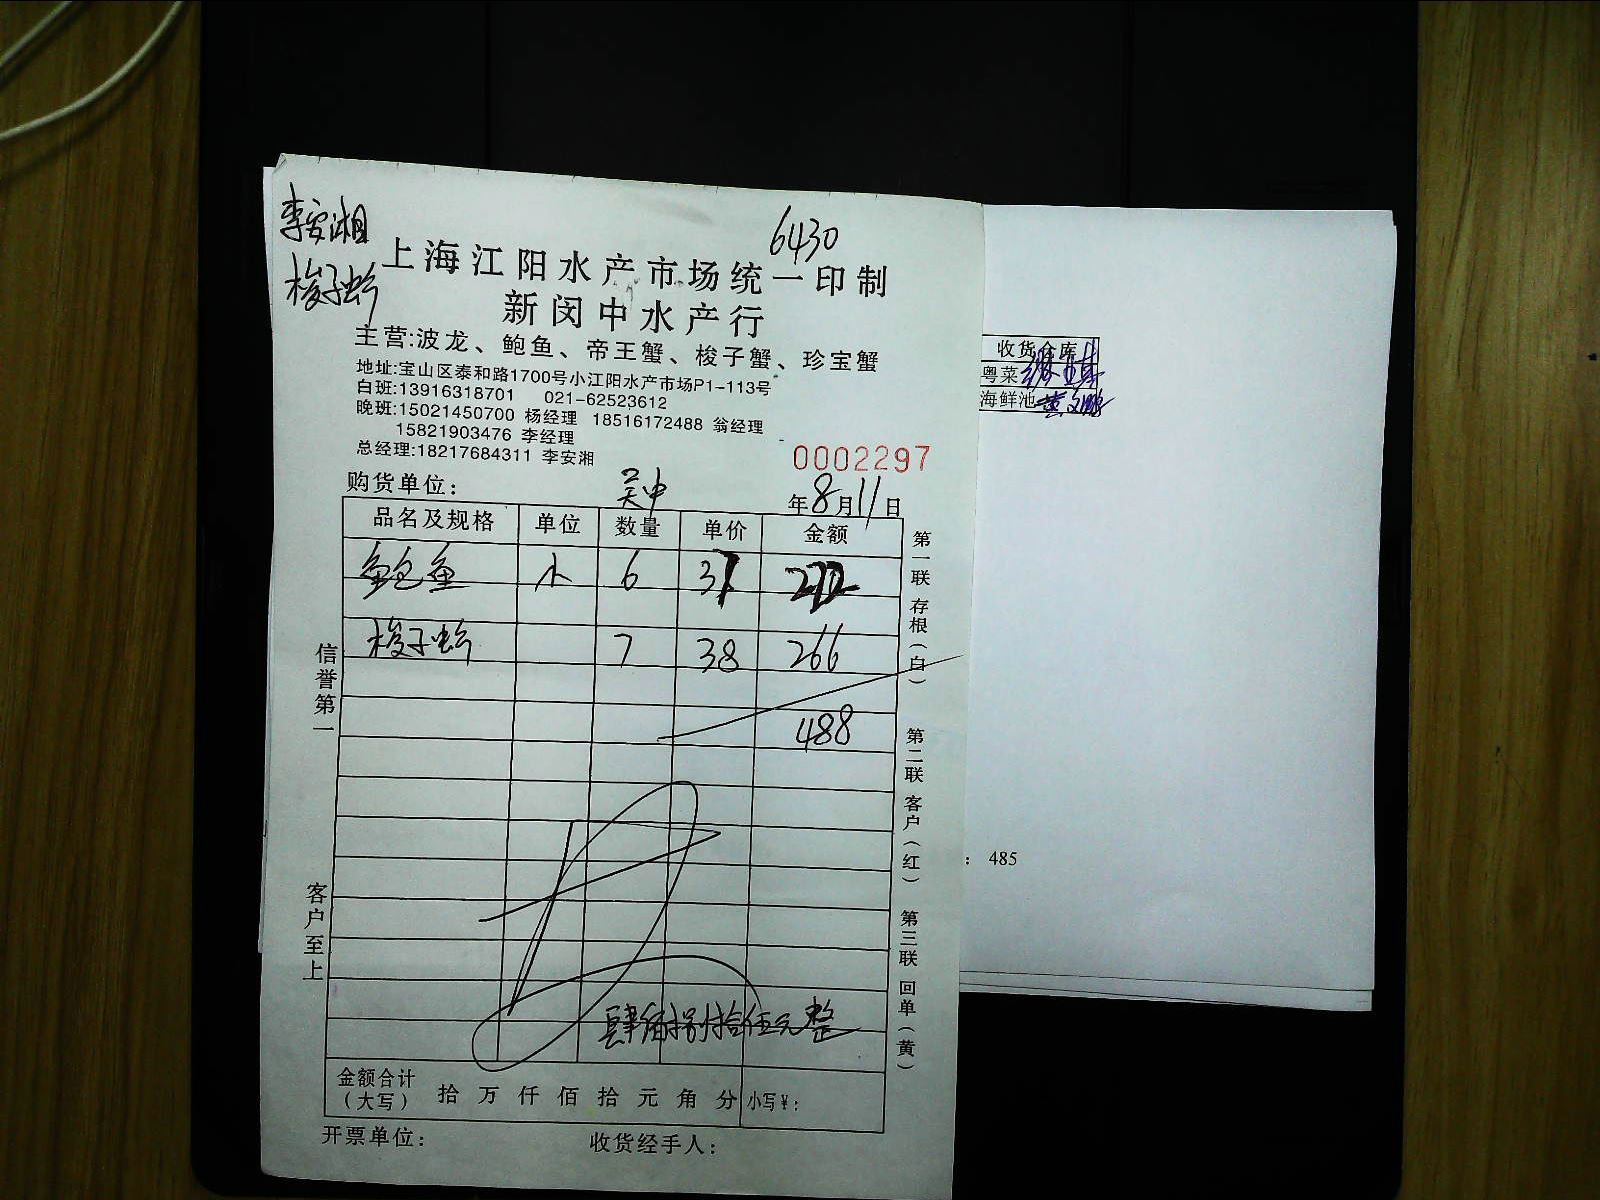 李安湘
6430
梭子蟹
上海江阳水产市场统一印制
新闵中水产行
主营:波龙、鲍鱼、帝王蟹、梭子蟹、珍宝蟹
地址:宝山区泰和路1700号小江阳水产市场P1-113号
白班:13916318701 021-62523612
晚班:15021450700 杨经理 18516172488 翁经理
15821903476 李经理
总经理:18217684311 李安湘
0002297
购货单位: 吴中 年8月11日
品名及规格 单位 数量 单价 金额
鲍鱼 小 6 37 222
梭子蟹 7 38 266
488
肆佰捌拾伍元整
金额合计
(大写) 拾 万 仟 佰 拾 元 角 分 小写¥:
开票单位: 收货经手人:
信誉第一
客户至上
第一联 存根(白)
第二联 客户(红)
第三联 回单(黄)
收货仓库
粤菜
海鲜池 黄文鹏
: 485